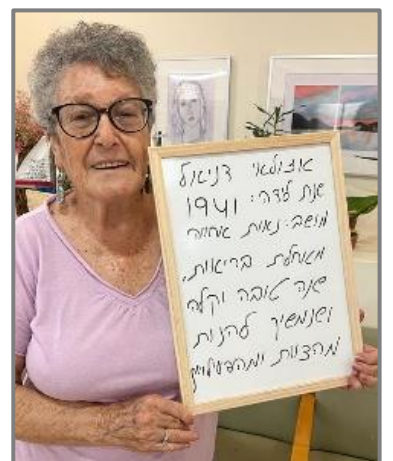 אזולאי דניאל
שנת לידה: 1941
מושב: נאות
מאחלת בריאות,
שנה טובה וקלה
ושנמשיך להנות
מהצוות ומהפעילויות